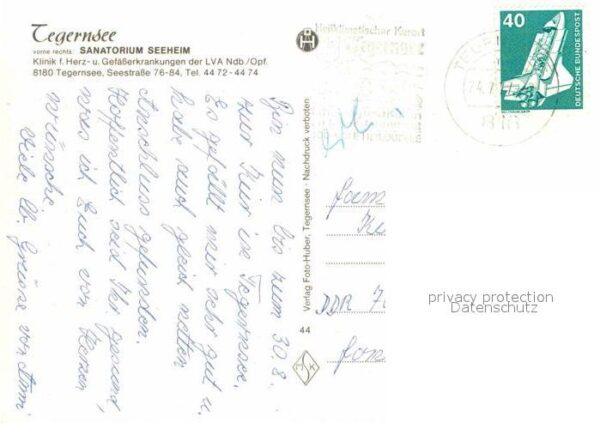 Tegernsee
vorne rechts: SANATORIUM SEEHEIM
Klinik f. Herz- u. Gefäßerkrankungen der LVA Ndb./Opf.
8180 Tegernsee, Seestraße 76-84, Tel. 44 72 - 44 74
Bin nun bis zum 30.8.
zur Kur in Tegernsee.
Es gefällt mir sehr gut u.
habe auch gleich netten
Anschluss gefunden.
Hoffentlich seid Ihr gesund,
was ich Euch von Herzen
wünsche.
Viele lb. Grüsse von
Verlag Foto-Huber, Tegernsee · Nachdruck verboten
44
Heilklimatischer Kurort
Tegernsee
40
DEUTSCHE BUNDESPOST
Fam
DDR
privacy protection
Datenschutz